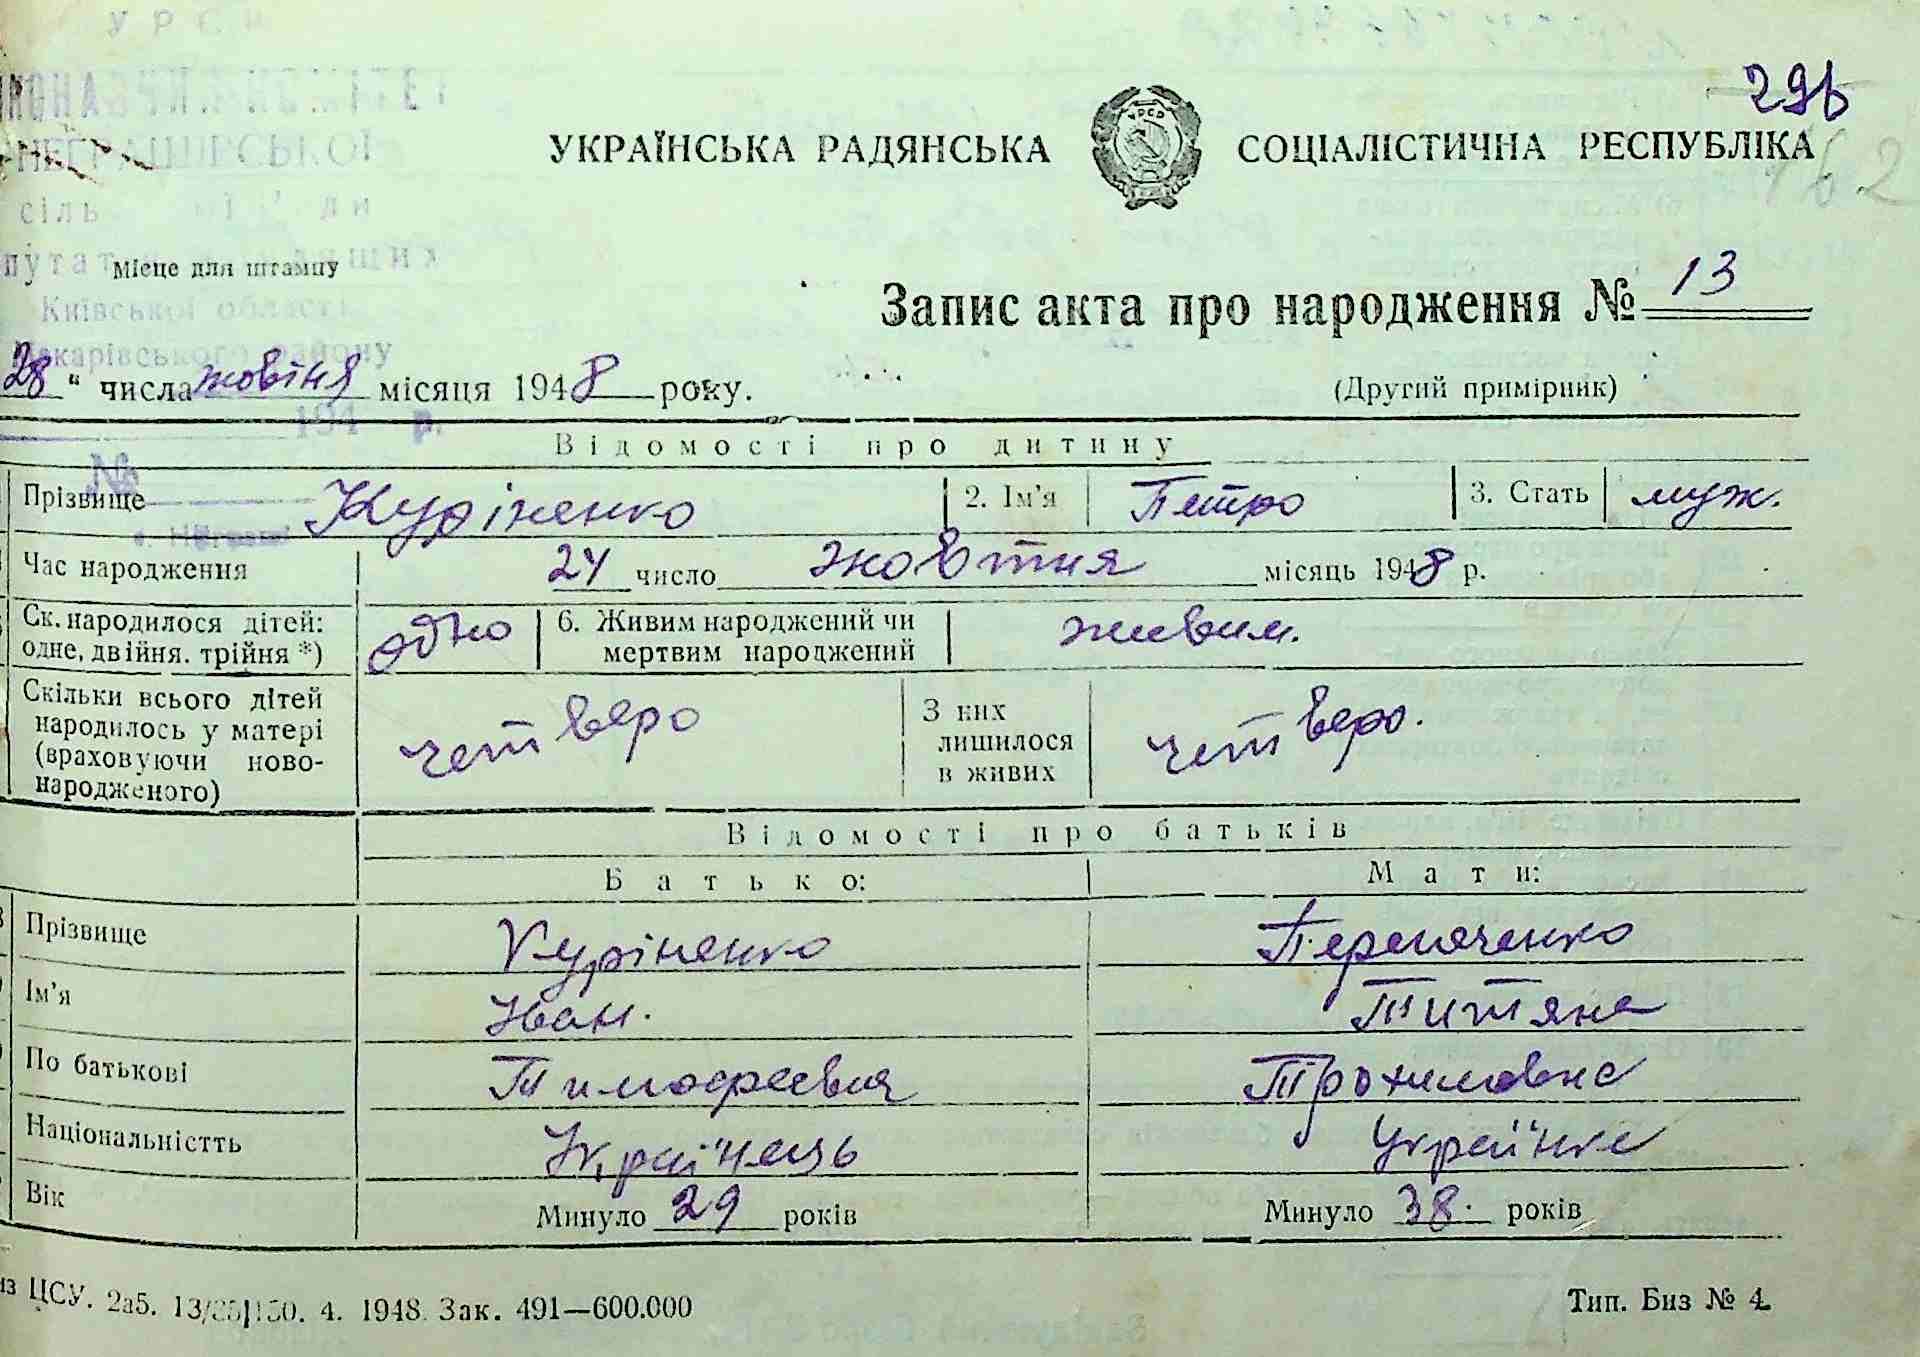 УРСР
296
УКРАЇНСЬКА РАДЯНСЬКА СОЦІАЛІСТИЧНА РЕСПУБЛІКА
162
Місце для штампу
Київської області
Макарівського району
Запис акта про народження № 13
28 " числа жовтня місяця 1948 року.
(Другий примірник)
194 р.
Відомості про дитину
№
Прізвище Куріненко 2. Ім'я Петро 3. Стать муж.
Час народження 24 число жовтня місяць 1948 р.
Ск. народилося дітей: одне, двійня. трійня *) одно 6. Живим народжений чи мертвим народжений живим.
Скільки всього дітей народилось у матері (враховуючи ново-народженого) четверо З них лишилося в живих четверо.
Відомості про батьків
Батько: Мати:
Прізвище Куріненко
Ім'я Іван. Титяна
По батькові Тимофеевич Трохимовна
Національністть Українець Українка
Вік Минуло 29 років Минуло 38. років
ЦСУ. 2а5. 4. 1948. Зак. 491—600.000
Тип. Биз № 4.